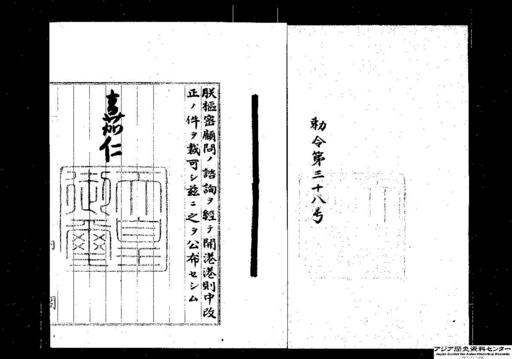 勅令第三十八号
朕枢密顧問ノ諮詢ヲ経テ開港港則中改
正ノ件ヲ裁可シ茲ニ之ヲ公布セシム
嘉仁
天皇
御璽
アジア歴史資料センター
Japan Center for Asian Historical Records